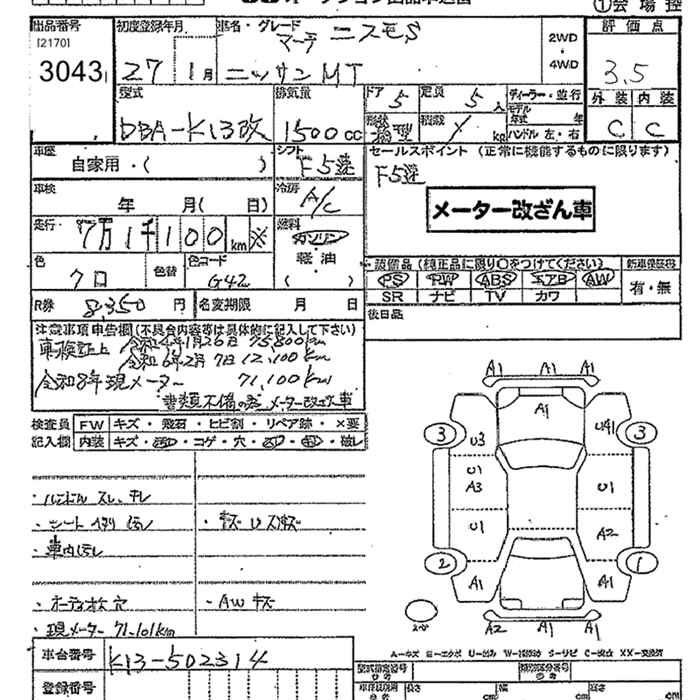 ①会場控
出品番号
[2170]
3043
初度登録年月
27 1月
車名・グレード
マーチ ニスモS
ニッサン MT
2WD
・
4WD
評価点
3.5
外装 内装
C C
型式
DBA-K13改
排気量
1500cc
ドア 5
定員 5人
形状 箱型
積載 kg
ディーラー・並行
モデル年式 年
ハンドル 左・右
車歴
自家用・( )
シフト
F5速
セールスポイント (正常に機能するものに限ります)
F5速
メーター改ざん車
車検
年 月( 日)
冷房
A/C
走行
7万1千100km ※
燃料
ガソリン
軽油
( )
色
クロ
色替
色コード
G42
装備品 (純正品に限り○をつけてください)
PS PW ABS エアB AW
SR ナビ TV カワ
新車保証書
有・無
R券 8,350円
名変期限 月 日
後日品
注意事項申告欄 (不具合内容等は具体的に記入して下さい)
車検証上 令和4年1月26日 75,800km
令和6年2月7日 12,100km
令和8年現メーター 71,100km
書類不備の為 メーター改ざん車
検査員 FW キズ・飛石・ヒビ割・リペア跡・×要
記入欄 内装 キズ・
・コゲ・穴・
・破レ
・ハンドル スレ、チレ
・シート
・車内
・キズ U
・オーディオ 穴
・AW キズ
・現メーター 71,101km
A1 A1 A1
A1
3 U3 U41 3
U1
A3 U1
U1 A2
2 A1 A1 1
A2 A1 A1
A-キズ E-エクボ U-凹み W-補修跡 S-サビ C-腐食 XX-交換済
車台番号
K13-502314
登録番号
型式指定番号
類別区分番号
長さ cm
幅 cm
高さ cm